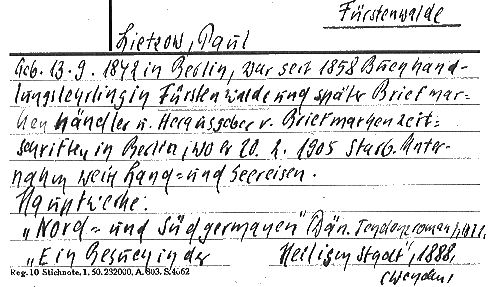 Fürstenwalde
Lietzow, Paul
Geb. 13.9.1842 in Berlin, war seit 1858 Buchhand-
lungslehrling in Fürstenwalde und später Briefmar-
kenhändler u. Herausgeber v. Briefmarkenzeit-
schriften in Berlin, wo er 20.2.1905 starb. Unter-
nahm weit Land= und Seereisen.
Hauptwerke:
„Nord= und Südgermanen" Dän. Tendenzroman,
„Ein Besuch in der Heiligen Stadt", 1888,
Reg. 10 Stichnote, 1. 50. 232000, A. 803. S. 4662